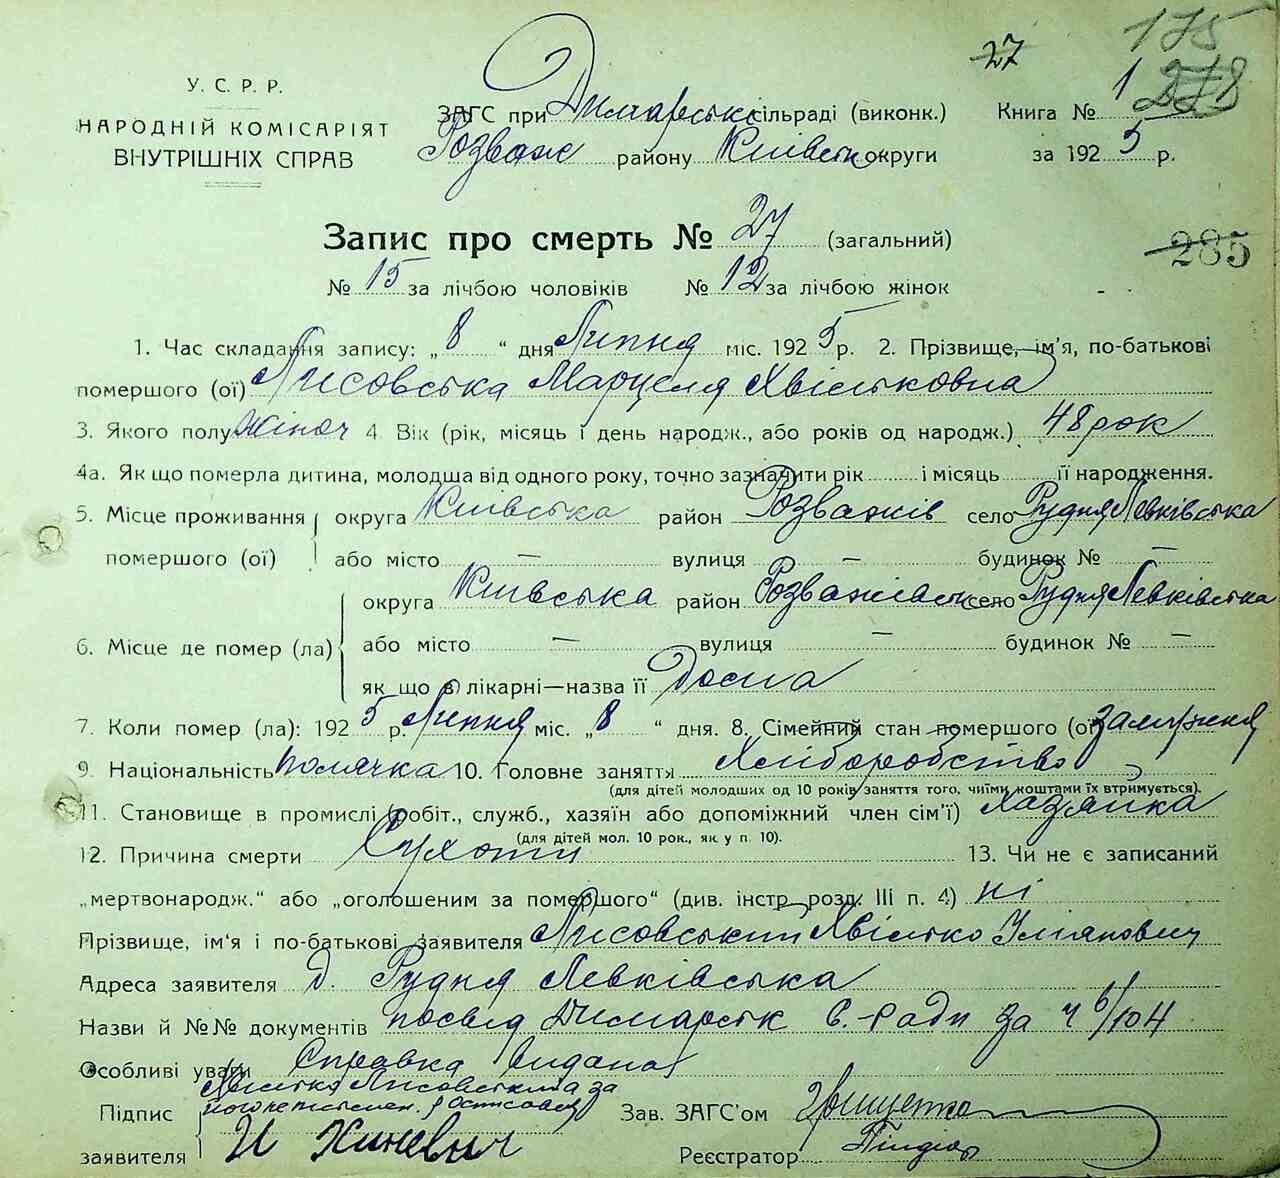 27 175
У. С. Р. Р.
НАРОДНІЙ КОМІСАРІЯТ
ВНУТРІШНІХ СПРАВ
ЗАГС при Димарські сільраді (виконк.) Книга № 1 278
Розваж району Київськ округи за 1925 р.
Запис про смерть № 27 (загальний)
285
№ 15 за лічбою чоловіків № 12 за лічбою жінок
1. Час складання запису: „8“ дня Липня міс. 1925 р. 2. Прізвище, ім'я, по-батькові
помершого (ої) Лисовська Марцеля Хвільковна
3. Якого полу жіноч 4. Вік (рік, місяць і день народж., або років од народж.) 48 рок
4а. Як що померла дитина, молодша від одного року, точно зазначити рік і місяць її народження.
5. Місце проживання округа Київська район Розважів село Рудня Левківська
помершого (ої) або місто — вулиця — будинок № —
округа Київська район Розважівськ село Рудня Левківська
6. Місце де помер (ла) або місто — вулиця — будинок № —
як що в лікарні—назва її Дома
7. Коли помер (ла): 1925 р. Липня міс. „8“ дня. 8. Сімейний стан помершого (ої) замужня
9. Національність полячка 10. Головне заняття Хліборобство
(для дітей молодших од 10 років заняття того, чиїми коштами їх втримується).
11. Становище в промислі (робіт., служб., хазяїн або допоміжний член сім'ї) хазяйка
(для дітей мол. 10 рок., як у п. 10).
12. Причина смерти Сухоти 13. Чи не є записаний
„мертвонародж.“ або „оголошеним за помершого“ (див. інстр. розд. III п. 4) ні
Прізвище, ім'я і по-батькові заявителя Лисовський Хвілько
Адреса заявителя д. Рудня Левківська
Назви й №№ документів посвід Димарськ С.-ради за ч 6/104
Особливі уваги Справка видана
Хвілько Лисовський а за
його неписьмен. росписовся
Підпис Зав. ЗАГС'ом
заявителя И Хиневич Реєстратор